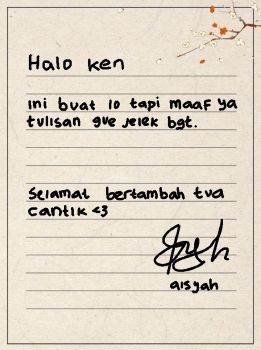 Halo ken
Ini buat lo tapi maaf ya
tulisan gue jelek bgt.
Selamat bertambah tua
cantik <3
aisyah